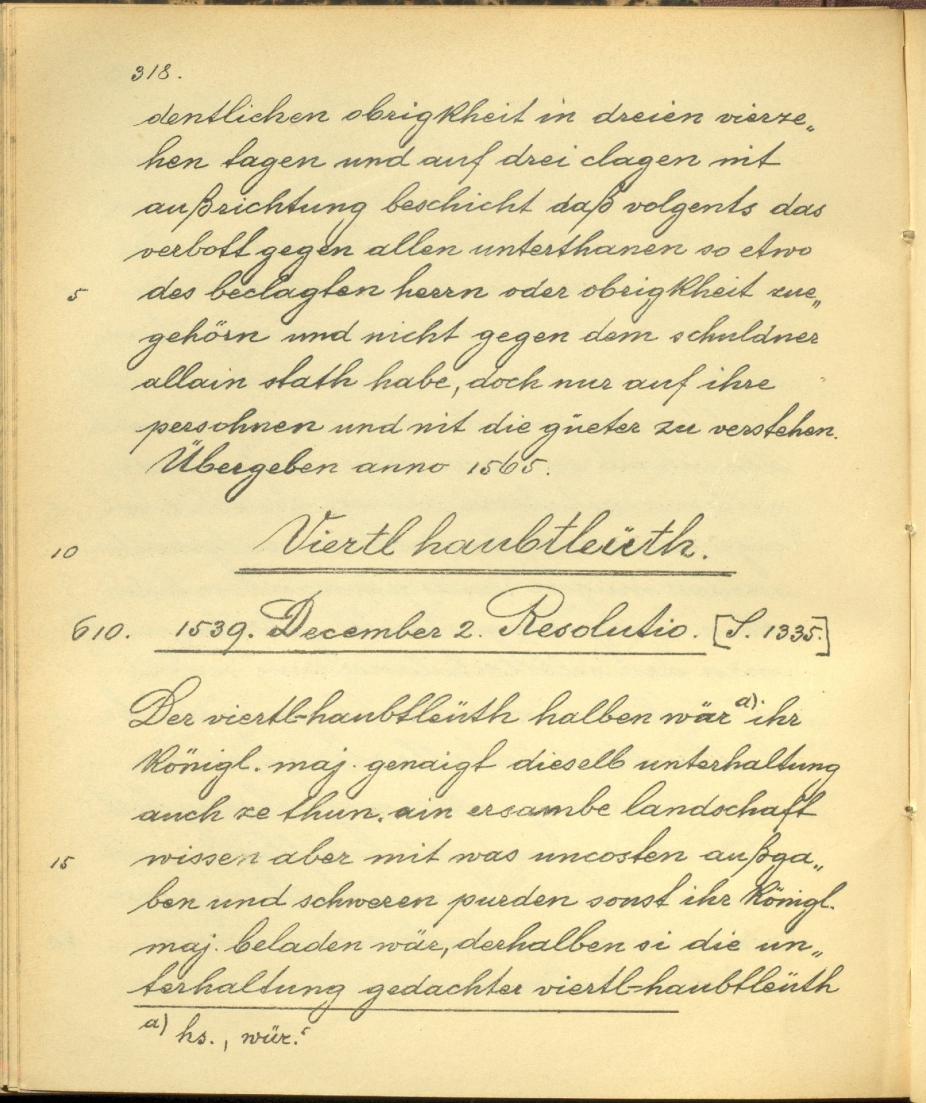 318.
dentlichen obrigkheit in dreien vierze„
hen tagen und auf drei clagen nit
außrichtung beschicht daß volgents das
verbott gegen allen unterthanen so etwo
5 des beclagten herrn oder obrigkheit zue„
gehörn und nicht gegen dem schuldner
allain stath habe, doch nur auf ihre
persohnen und nit die güeter zu verstehen.
Übergeben anno 1565.
10 Viertl haubtleüth.
610. 1539. December 2. Resolutio. [S. 1335.]
Der viertl-haubtleüth halben wär a) ihr
königl. maj. genaigt dieselb unterhaltung
auch ze thun. ain ersambe landschaft
15 wissen aber mit was uncosten außga„
ben und schweren purden sonst ihr königl.
maj. beladen wär, derhalben si die un„
terhaltung gedachter viertl-haubtleüth
a) hs., wür.‘